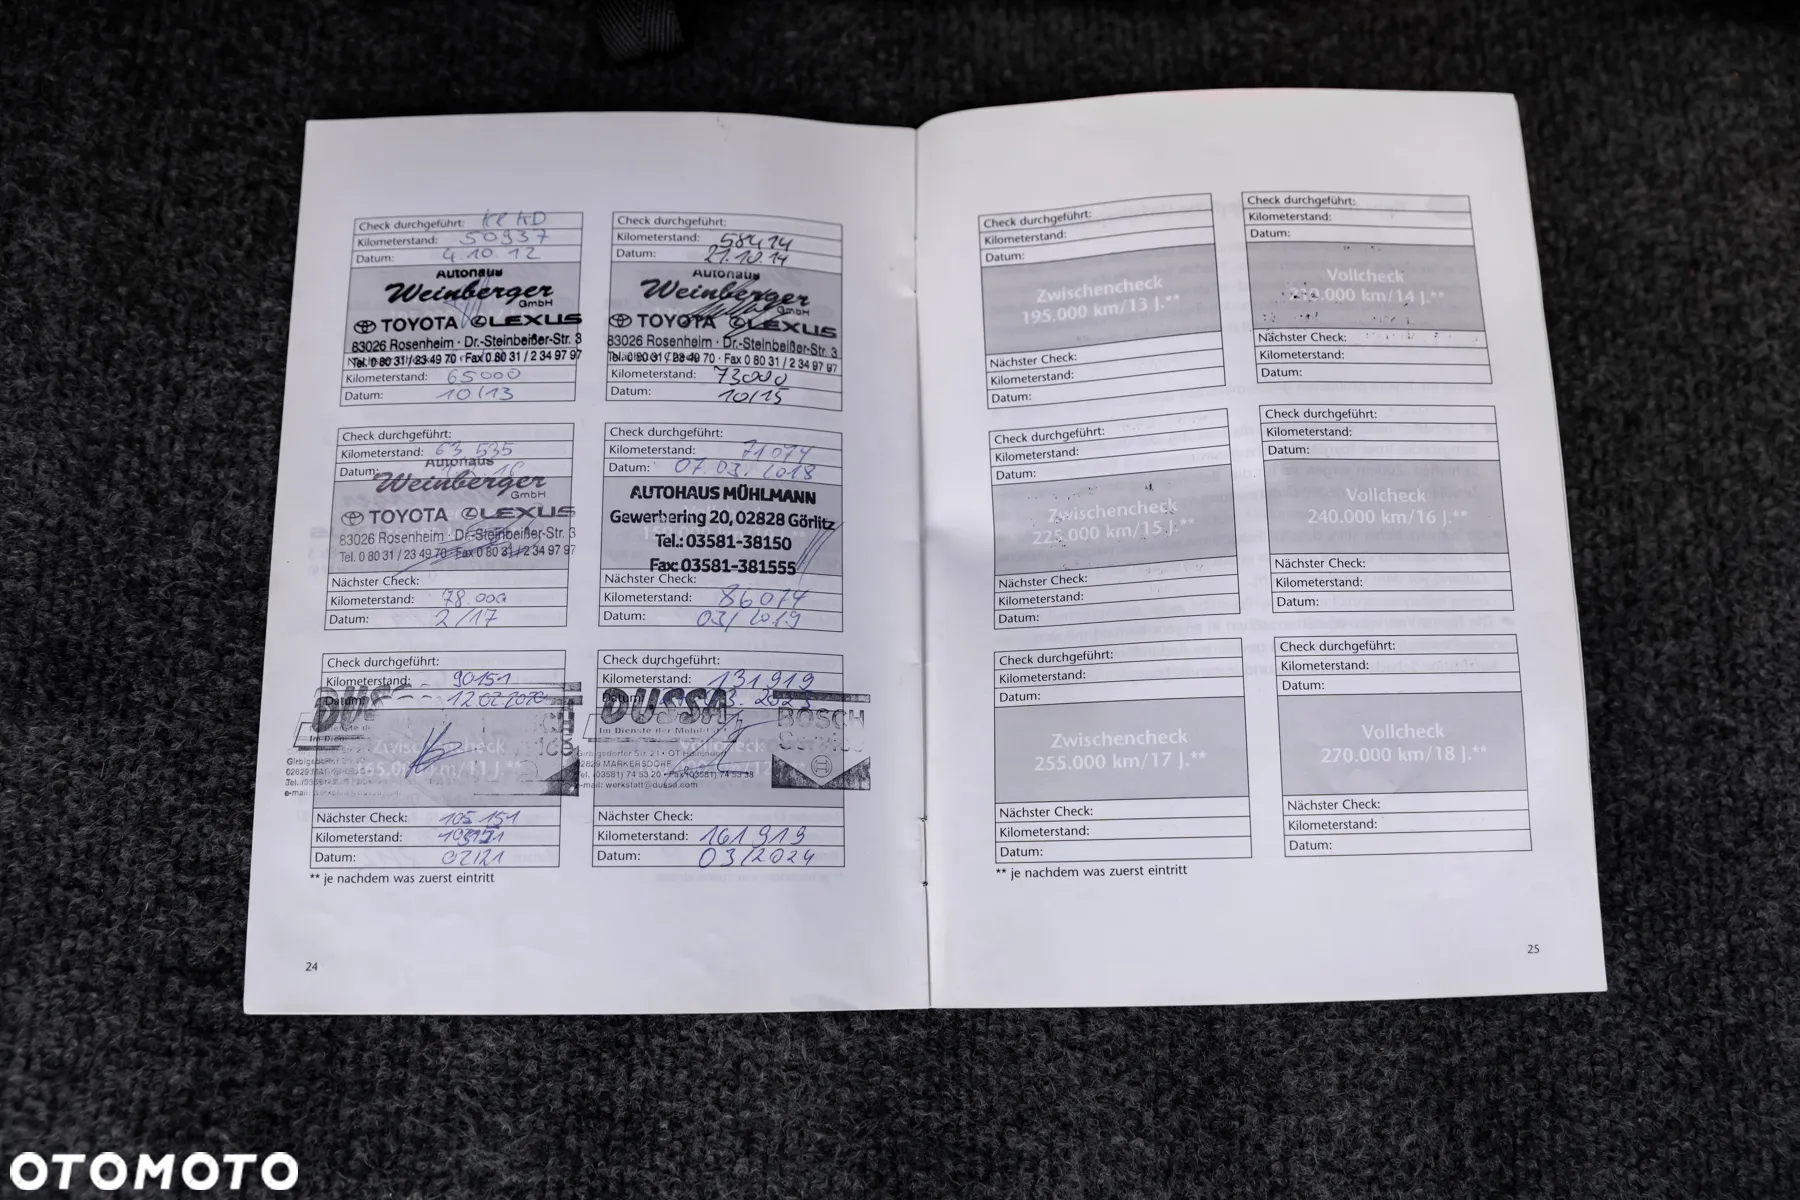 Check durchgeführt: KLKD
Kilometerstand: 50937
Datum: 4.10.12
Autohaus
Weinberger
GmbH
TOYOTA LEXUS
83026 Rosenheim · Dr.-Steinbeißer-Str. 3
Tel. 0 80 31 / 23 49 70 · Fax 0 80 31 / 2 34 97 97
Kilometerstand: 65000
Datum: 10/13
Check durchgeführt:
Kilometerstand: 58414
Datum: 21.10.14
Autohaus
Weinberger
GmbH
TOYOTA LEXUS
83026 Rosenheim · Dr.-Steinbeißer-Str. 3
Tel. 0 80 31 / 23 49 70 · Fax 0 80 31 / 2 34 97 97
Kilometerstand: 73000
Datum: 10/15
Check durchgeführt:
Kilometerstand: 63 535
Datum:
Autohaus
Weinberger
GmbH
TOYOTA LEXUS
83026 Rosenheim · Dr.-Steinbeißer-Str. 3
Tel. 0 80 31 / 23 49 70 · Fax 0 80 31 / 2 34 97 97
Nächster Check:
Kilometerstand: 78.000
Datum: 2/17
Check durchgeführt:
Kilometerstand: 71074
Datum: 07.03.2018
AUTOHAUS MÜHLMANN
Gewerbering 20, 02828 Görlitz
Tel.: 03581-38150
Fax: 03581-381555
Nächster Check:
Kilometerstand: 86074
Datum: 03/2019
Check durchgeführt:
Kilometerstand: 90151
Datum: 12.02.2020
Zwischencheck
km/11 J.**
Nächster Check: 105 151
Kilometerstand:
Datum: 02/21
Check durchgeführt:
Kilometerstand: 131919
Datum:
DUSSA
BOSCH
Service
Im Dienste der Mobilität
Girbigsdorfer Str. 21 • OT Holtendorf
02829 MARKERSDORF
Tel. (03581) 74 53 20 • Fax (03581) 74 53 38
e-mail: werkstatt@dussa.com
Nächster Check:
Kilometerstand: 161 919
Datum: 03/2024
** je nachdem was zuerst eintritt
24
Check durchgeführt:
Kilometerstand:
Datum:
Zwischencheck
195.000 km/13 J.**
Nächster Check:
Kilometerstand:
Datum:
Check durchgeführt:
Kilometerstand:
Datum:
Vollcheck
210.000 km/14 J.**
Nächster Check:
Kilometerstand:
Datum:
Check durchgeführt:
Kilometerstand:
Datum:
Zwischencheck
225.000 km/15 J.**
Nächster Check:
Kilometerstand:
Datum:
Check durchgeführt:
Kilometerstand:
Datum:
Vollcheck
240.000 km/16 J.**
Nächster Check:
Kilometerstand:
Datum:
Check durchgeführt:
Kilometerstand:
Datum:
Zwischencheck
255.000 km/17 J.**
Nächster Check:
Kilometerstand:
Datum:
Check durchgeführt:
Kilometerstand:
Datum:
Vollcheck
270.000 km/18 J.**
Nächster Check:
Kilometerstand:
Datum:
** je nachdem was zuerst eintritt
25
OTOMOTO